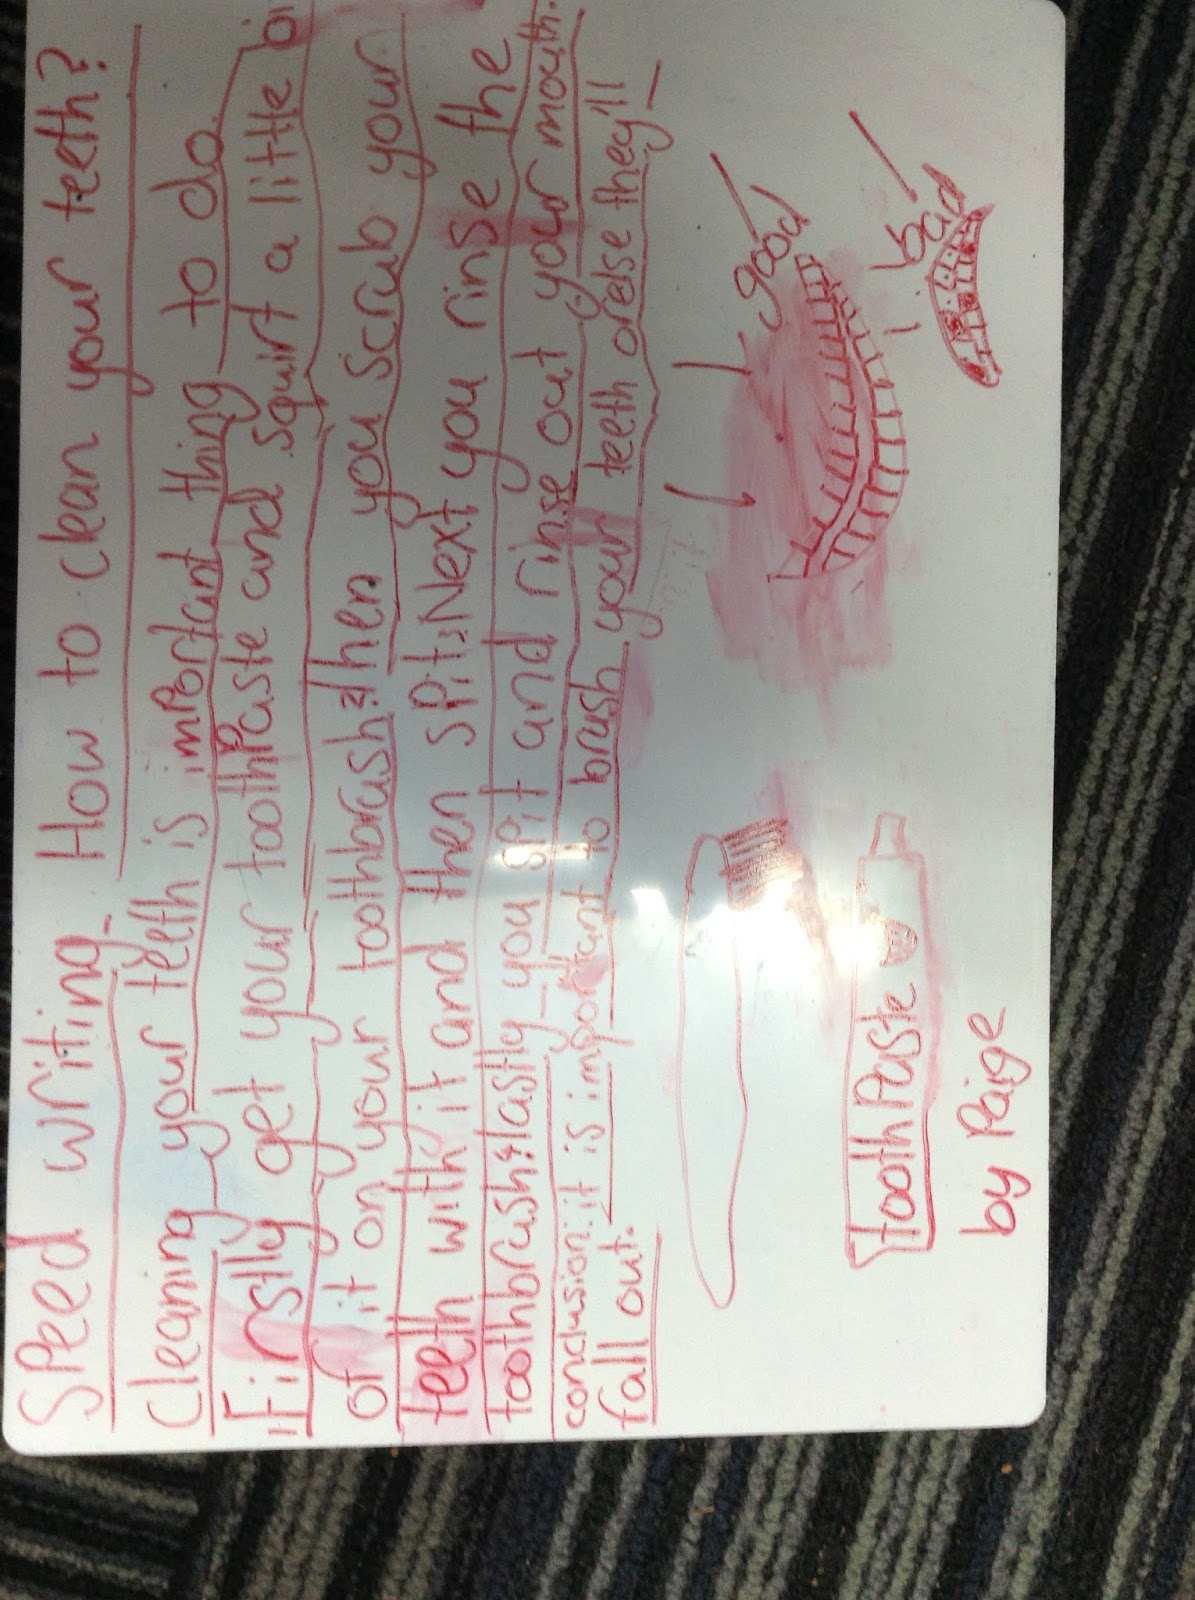 Speed writing How to clean your teeth?
Cleaning your teeth is important thing to do.
1Firstly get your toothPaste and squirt a little bi
of it on your toothbrush.2then you scrub your
teeth with it and then spit.3Next you rinse the
toothbrush.4lastly you spit and rinse out your mouth.
conclusion:it is important to brush your teeth orelse they'll
fall out.
good
bad
toothPaste
by Paige